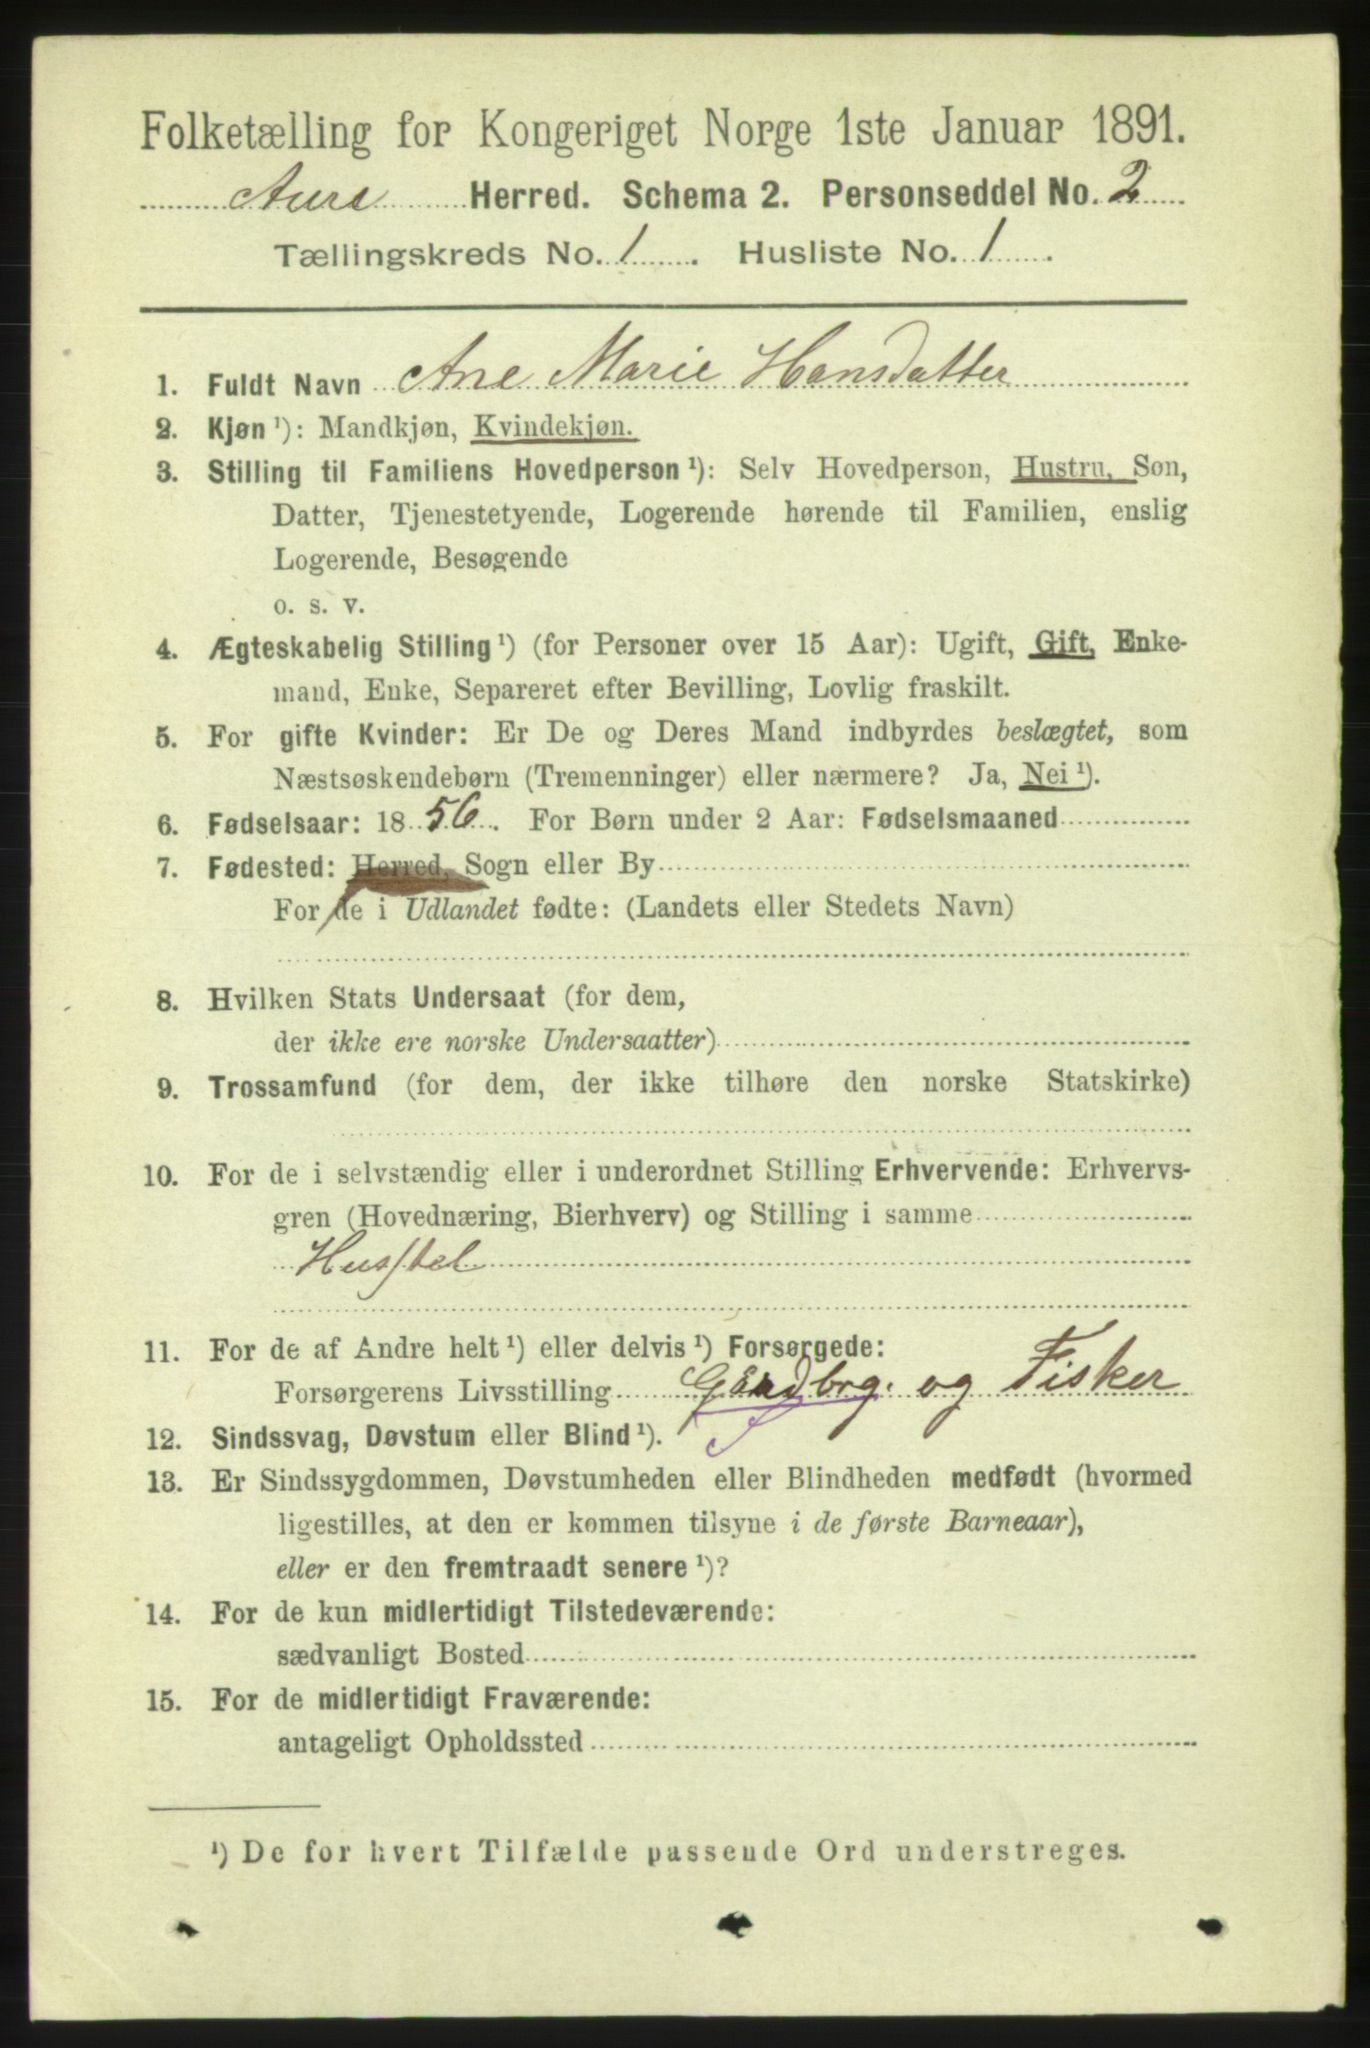 Folketælling for Kongeriget Norge 1ste Januar 1891.
Aure Herred. Schema 2. Personseddel No. 2
Tællingskreds No. 1. Husliste No. 1.
1. Fuldt Navn Ane Marie Hansdatter
2. Kjøn ¹): Mandkjøn, Kvindekjøn.
3. Stilling til Familiens Hovedperson ¹): Selv Hovedperson, Hustru, Søn,
Datter, Tjenestetyende, Logerende hørende til Familien, enslig
Logerende, Besøgende
o. s. v.
4. Ægteskabelig Stilling ¹) (for Personer over 15 Aar): Ugift, Gift, Enke-
mand, Enke, Separeret efter Bevilling, Lovlig fraskilt.
5. For gifte Kvinder: Er De og Deres Mand indbyrdes beslægtet, som
Næstsøskendebørn (Tremenninger) eller nærmere? Ja, Nei ¹).
6. Fødselsaar: 1856. For Børn under 2 Aar: Fødselsmaaned
7. Fødested: Herred, Sogn eller By
For de i Udlandet fødte: (Landets eller Stedets Navn)
8. Hvilken Stats Undersaat (for dem,
der ikke ere norske Undersaatter)
9. Trossamfund (for dem, der ikke tilhøre den norske Statskirke)
10. For de i selvstændig eller i underordnet Stilling Erhvervende: Erhvervs-
gren (Hovednæring, Bierhverv) og Stilling i samme
Husstel
11. For de af Andre helt ¹) eller delvis ¹) Forsørgede:
Forsørgerens Livsstilling Gårdbrg. og Fisker
12. Sindssvag, Døvstum eller Blind ¹).
13. Er Sindssygdommen, Døvstumheden eller Blindheden medfødt (hvormed
ligestilles, at den er kommen tilsyne i de første Barneaar),
eller er den fremtraadt senere ¹)?
14. For de kun midlertidigt Tilstedeværende:
sædvanligt Bosted
15. For de midlertidigt Fraværende:
antageligt Opholdssted
¹) De for hvert Tilfælde passende Ord understreges.